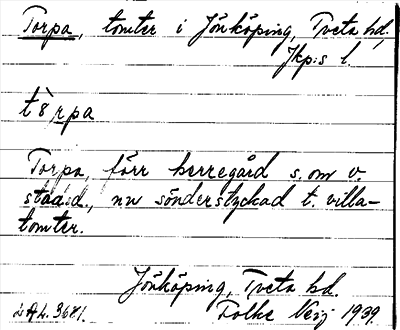 Torpa, tomter i Jönköping, Tveta hd,
Jkp:s l.
Torpa, förr herregård s.om v.
staden, nu sönderstyckad t. villa-
tomter.
Jönköping, Tveta hd.
Folke 1939.